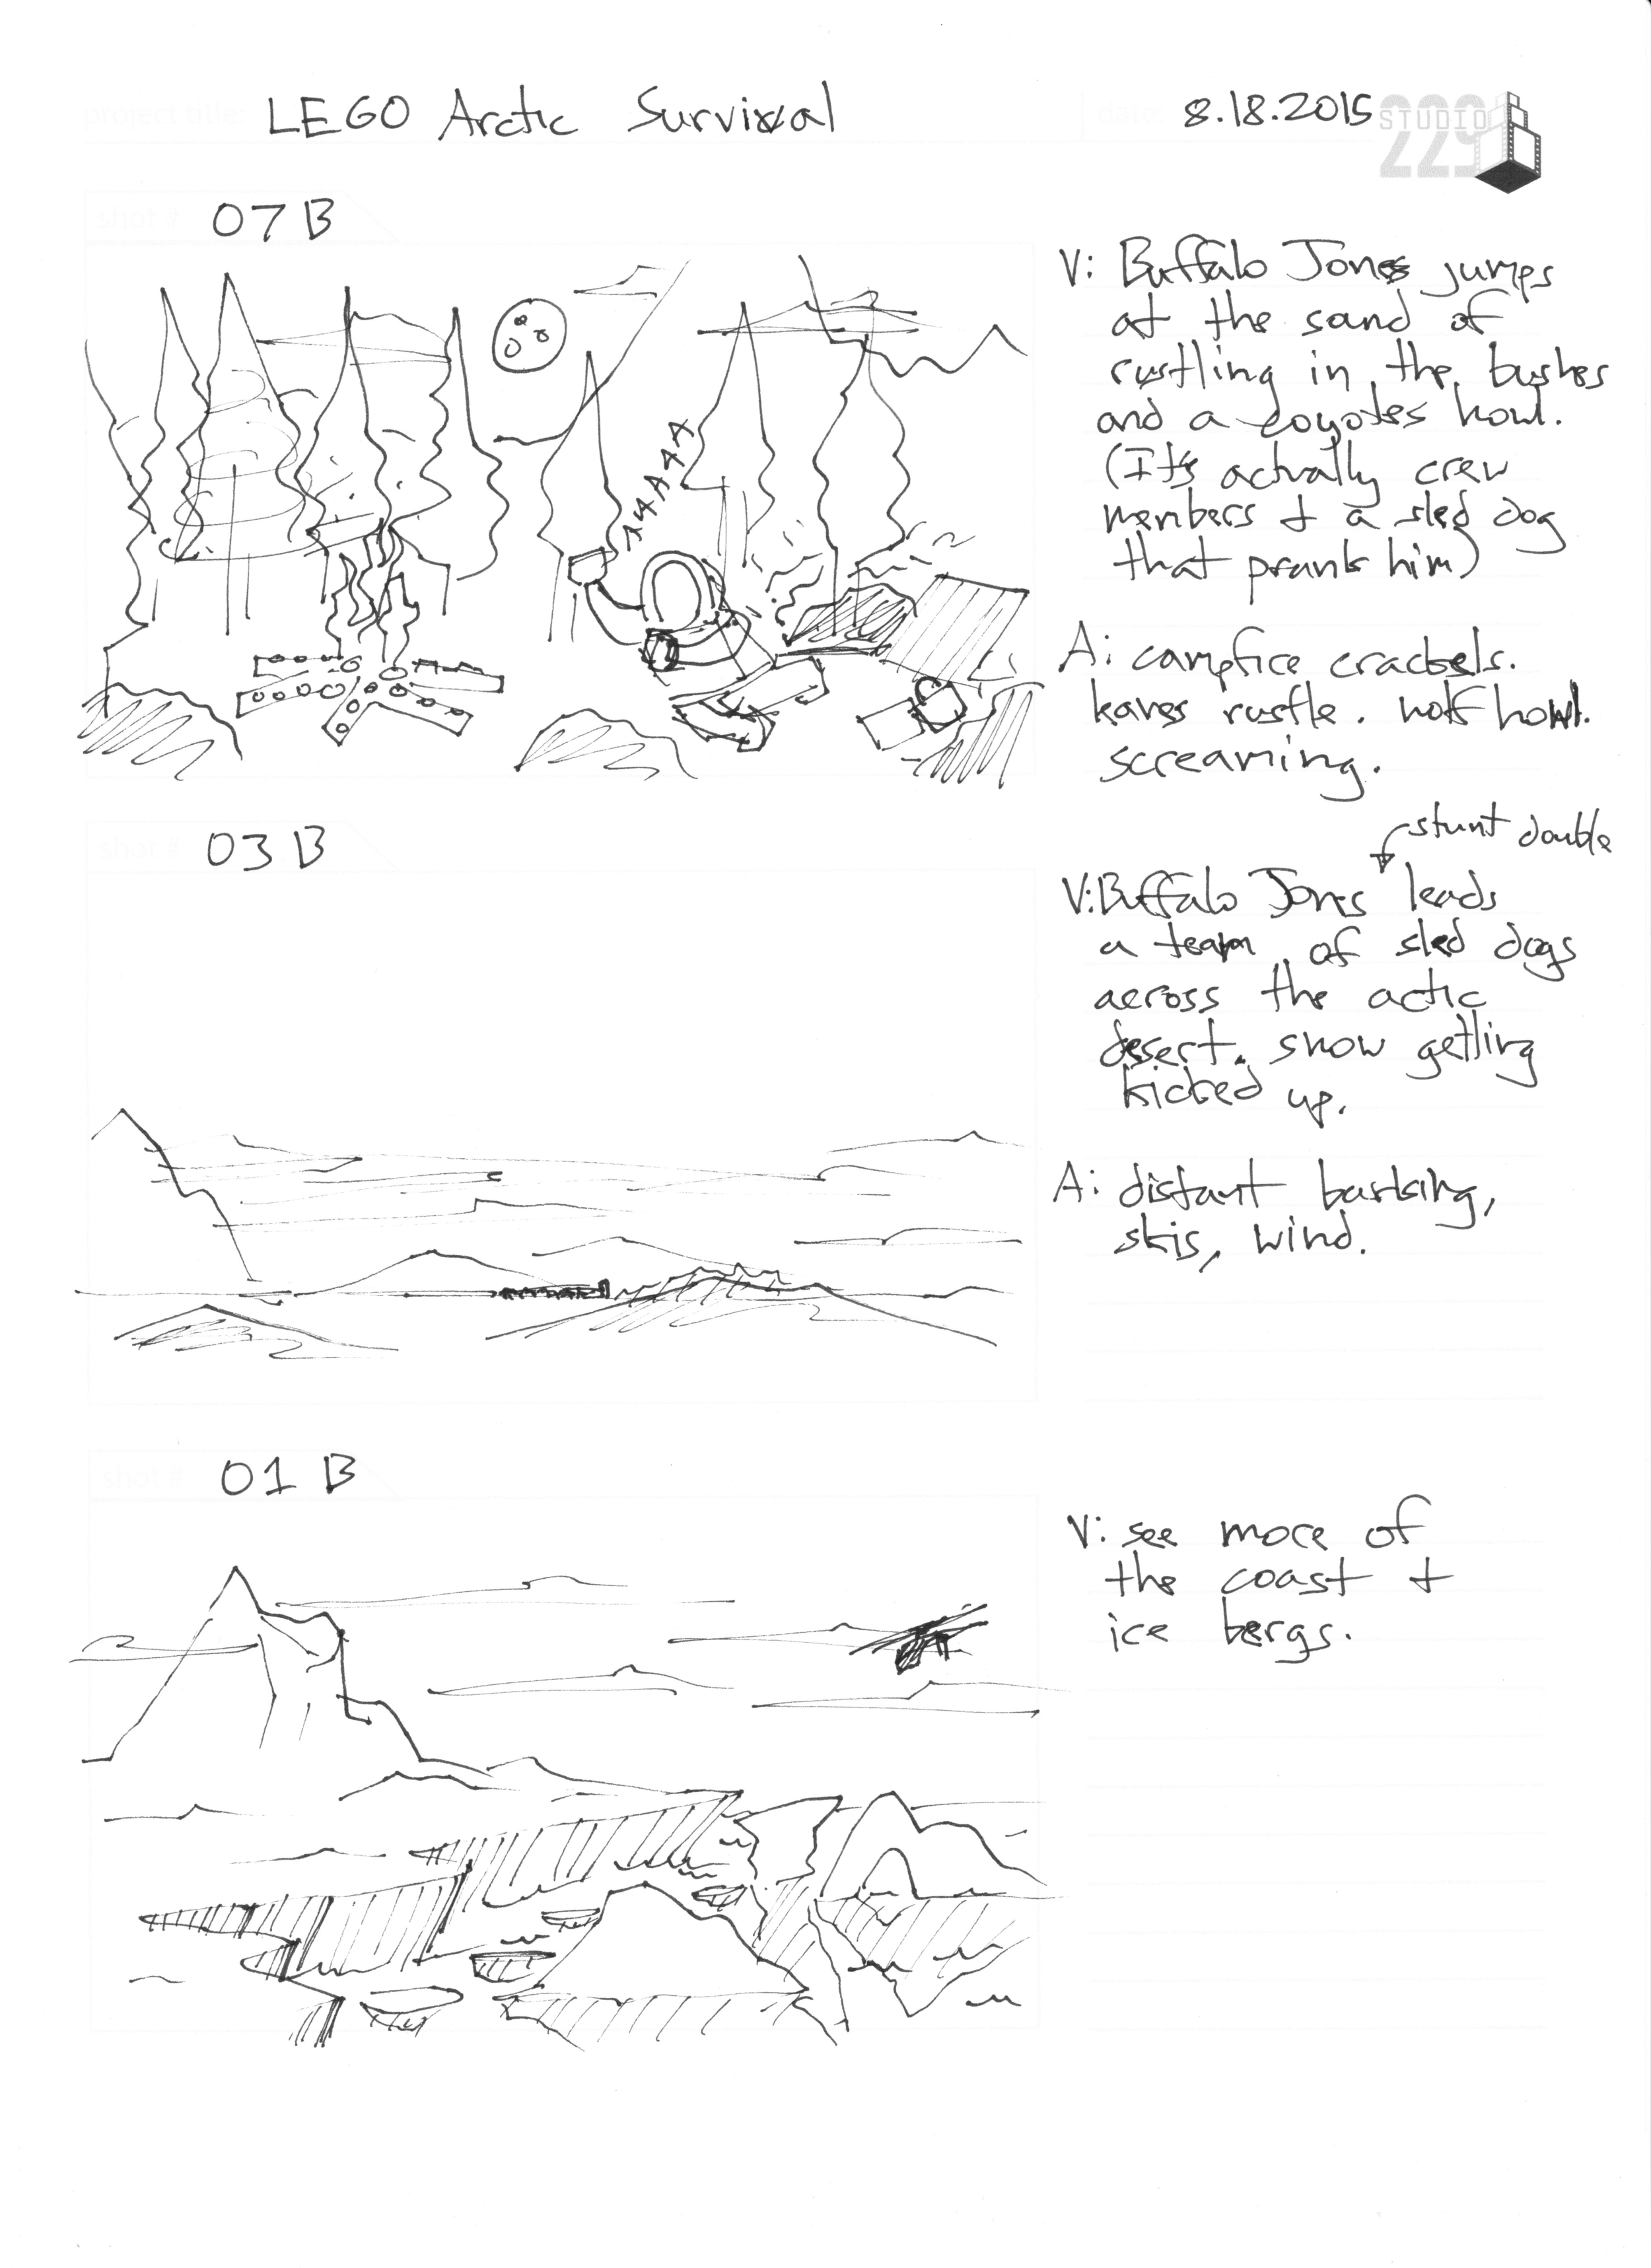 project title: LEGO Arctic Survival
date: 8.18.2015
STUDIO
229
shot # 07B
AAAAAA
V: Buffalo Jones jumps
at the sand of
rustling in the bushes
and a coyotes howl.
(It's actually crew
members + a sled dog
that prank him)
A: campfire crackels.
leaves rustle. howl.
screaming.
shot # 03B
stunt double
V: Buffalo Jones leads
a team of sled dogs
across the actic
desert. snow getting
kicked up.
A: distant barking,
skis, wind.
shot # 01B
V: see more of
the coast +
ice bergs.